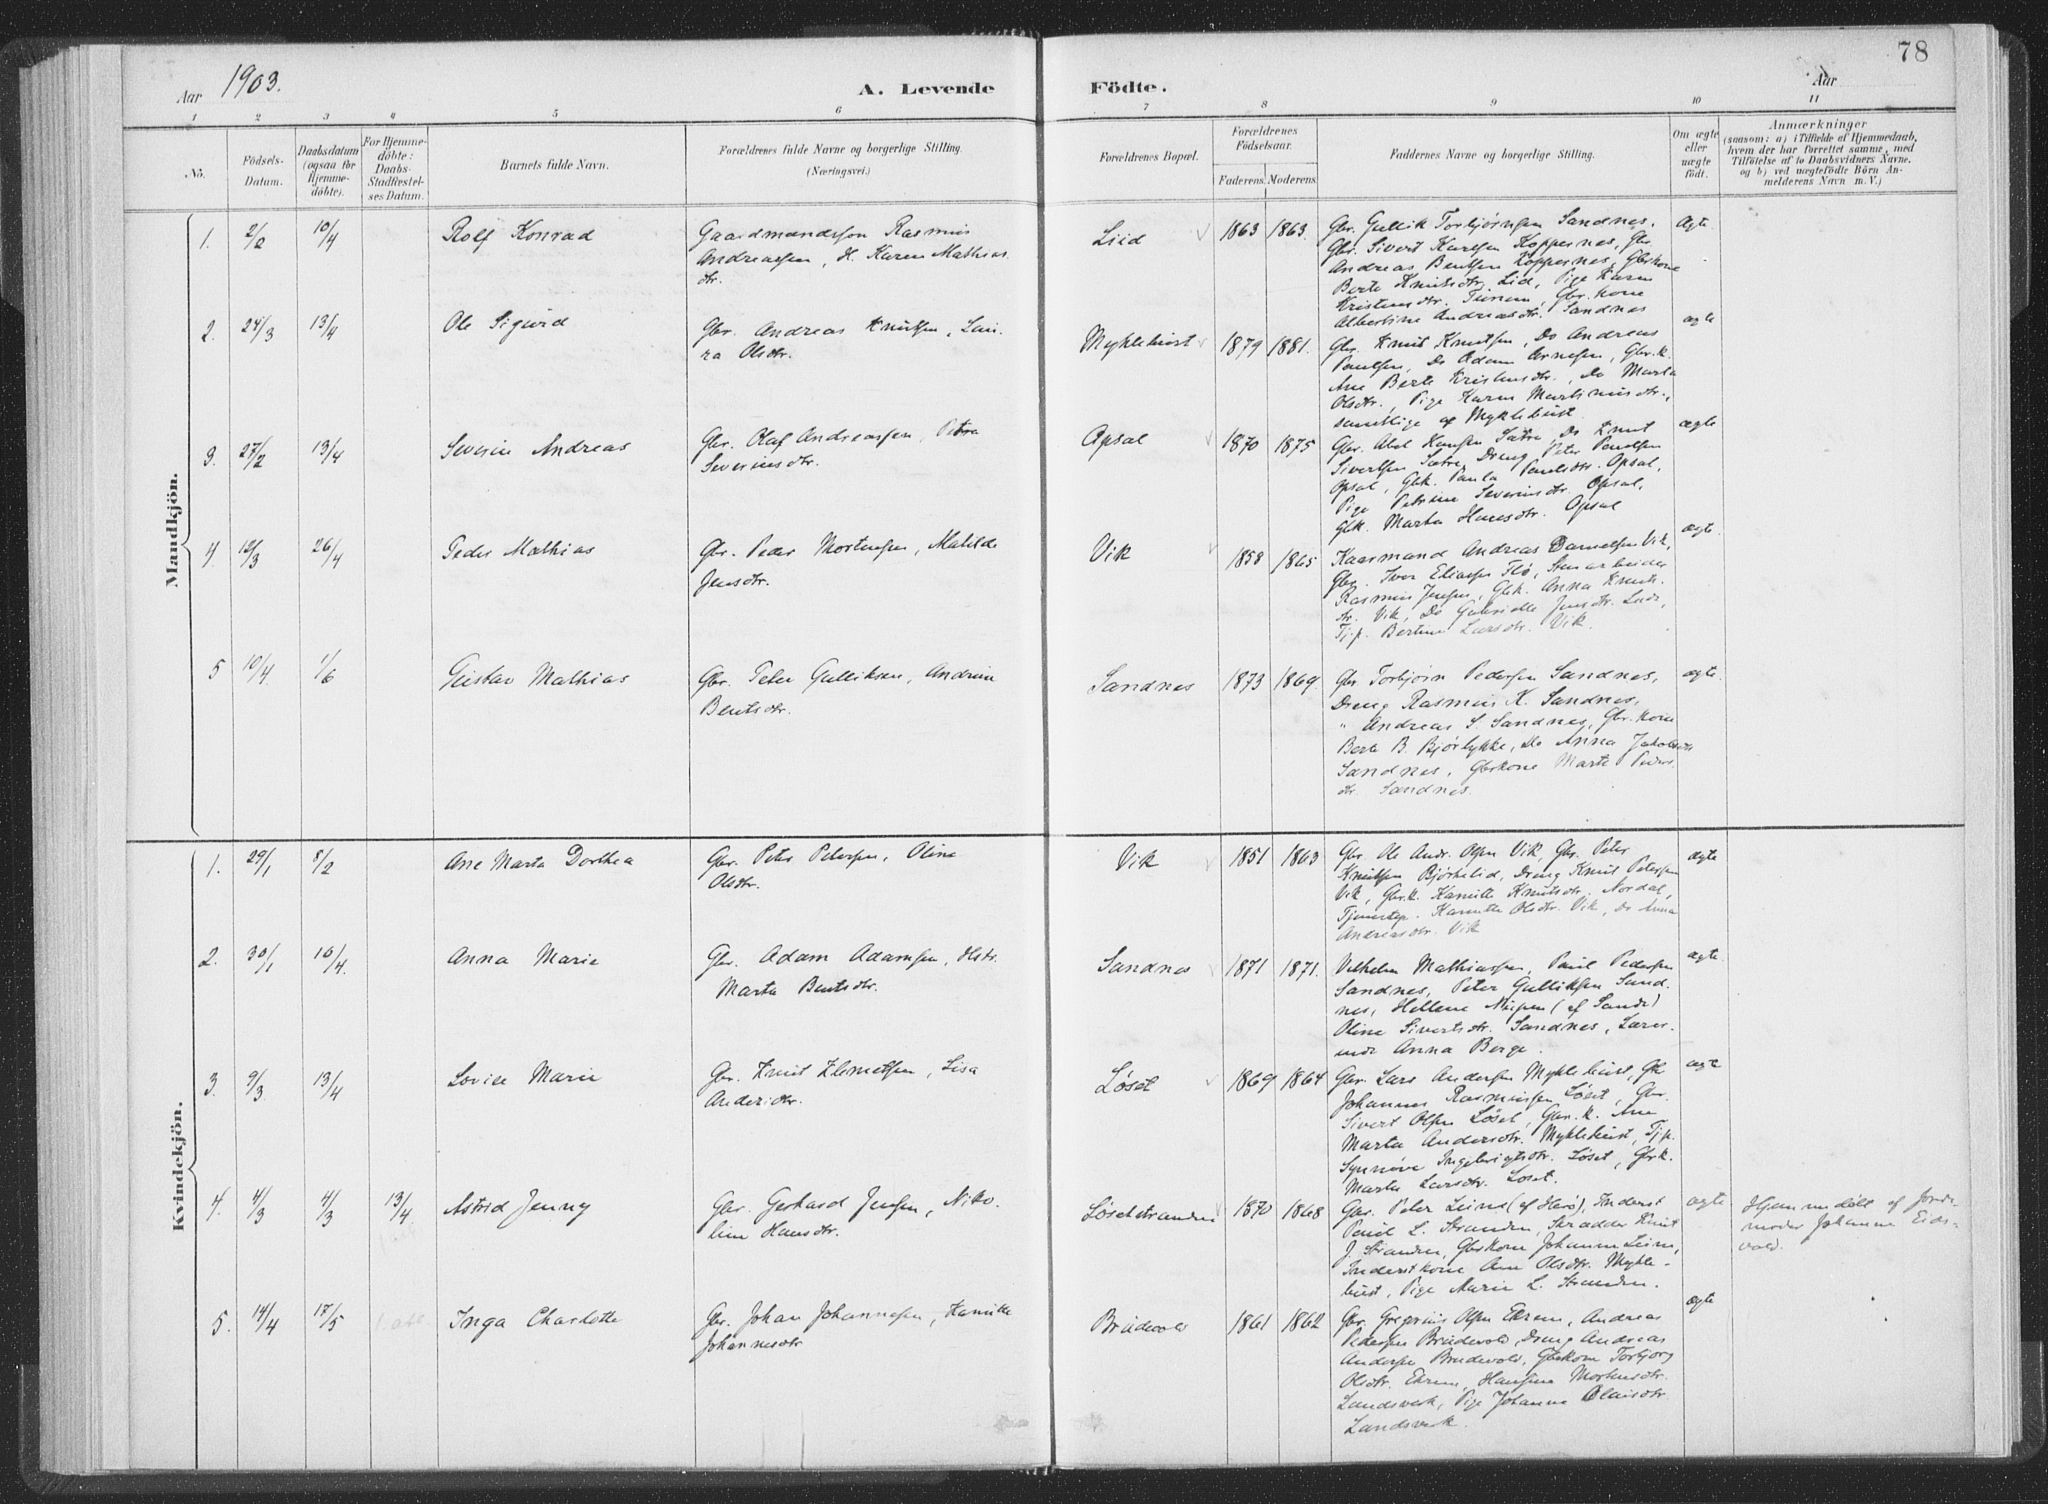 78
Aar 1903.
A. Levende Födte.
Aar
1 2 3 4 5 6 7 8 9 10 11
No.
Födsels-Datum.
Daabsdatum (ogsaa for Hjemmedöbte).
For Hjemmedöbte: Daabs-Stadfæstelses Datum.
Barnets fulde Navn.
Forældrenes fulde Navne og borgerlige Stilling.
(Næringsvei.)
Forældrenes Bopæl.
Forældrenes Födselsaar.
Faderens. Moderens.
Faddernes Navne og borgerlige Stilling.
Om ægte eller uægte födt.
Anmærkninger
(saasom: a) i Tilfælde af Hjemmedaab,
hvem der har forrettet samme, med
Tilföielse af to Daabsvidners Navne.
og b) ved uægtefödte Börn Anmelderens Navn m. V.)
Mandkjön.
1. 2/2 10/4 Rolf Konrad
Gaardmandssøn Rasmus
Andreassen, H. Karen Mathias
dtr.
Liid 1863 1863.
Gbr. Gullik Torbjörnsen Sandnes,
Gbr. Sivert Karlsen Koppernes, Gbr.
Andreas Bentsen Koppernes, Gbrkone
Berte Knutsdtr. Lid, Pige Karen
Kristensdtr. Tunem, Gbr. kone
Albertine Andreasdtr. Sandnes
Ægte.
2. 24/3 13/4 Ole Sigurd
Gbr. Andreas Knutsen, Lau-
ra Olsdtr.
Myklebust 1879 1881.
Gbr. Knut Knutsen, Do Andreas
Paulsen, Do Adam Arnesen, Gbr.k.
Ane Berte Kristensdtr., Do Marta
Olsdtr., Pige Karen Martinusdtr.,
samtlige af Myklebust
ægte
3. 27/2 13/4 Severin Andreas
Gbr. Olaf Andreassen, Petra
Severinsdtr.
Opsal 1870 1875
Gbr. Abel Hansen Sætre, Do Knut
Sivertsen Sætre, Dreng Peter Paulsen
Opsal, Gbk. Paula Paulsdtr. Opsal,
Pige Petrine Severinsdtr. Opsal,
Gbk. Marta Hansdtr. Opsal
ægte
4. 12/3 26/4 Peder Mathias
Gbr. Peder Mortensen, Matilde
Jensdtr.
Vik 1858 1865
Kaarmand Andreas Danielsen Vik,
Gbr. Iver Eliassen Flö, Stenarbeider
Rasmus Jensen, Gbk. Anna Knuts-
dtr. Vik, Do Gabrielle Jensdtr.
Tj.p. Bertine Larsdtr. Vik.
ægte.
5 10/4. 1/6 Gustav Mathias
Gbr. Peter Gulliksen, Andrine
Bentsdtr.
Sandnes 1873 1869.
Gbr Torbjörn Pedersen Sandnes,
Dreng Rasmus K. Sandnes,
" Andreas S. Sandnes, Gbr. kone
Berte B. Bjørlykke, Do Anna Jakobsdtr
Sandnes, Gbrkone Marte Peders
dtr. Sandnes.
ægte.
Kvindekjön.
1. 29/1 8/2 Ane Marta Dorthea
Gbr. Peter Petersen, Oline
Olsdtr.
Vik 1851 1863
Gbr. Ole Andr. Olsen Vik, Gbr. Peter
Knutsen Bjørkelid, Dreng Knut Petersen
Vik, Gbr.k. Kamille Knutsdtr. Nordal,
Tjenestep. Kamille Olsdtr. Vik, Do Anna
Andreasdtr. Vik
ægte
2. 30/1 10/4. Anna Marie
Gbr. Adam Adamsen, Hstr.
Marta Bentsdtr.
Sandnes 1871 1871.
Vilhelm Mathiassen, Paul Pedersen
Sandnes, Peter Gulliksen Sand-
nes, Hellene Nupen (af Sande)
Oline Sivertsdtr. Sandnes, Lærer-
inde Anna Berge.
ægte.
3. 9/3 13/4 Lovise Marie
Gbr. Knut Klemetsen, Lisa
Andersdtr.
Løset 1869 1864
Gbr. Lars Andersen Myklebust, Gbr
Johannes Rasmussen Løset, Gbr.
Sivert Olsen Løset, Gbr.k. Ane
Marta Andersdtr. Myklebust, Tj.p.
Synnøve Ingebrigtsdtr. Løset, Gbr.k.
Marta Larsdtr. Løset.
ægte
4. 4/3 4/3 13/4 Astrid Jenny
Gbr. Gerhard Jensen, Niko-
line Hansdtr.
Løsetstranden 1870 1868
Gbr. Peter Leine (af Herø), Inderst
Paul L. Stranden, Skrædder Knut
J. Stranden, Gbrkone Johanne Leine,
Inderstkone Ane Olsdtr. Mykle-
bust, Pige Marie L. Stranden.
ægte
Hjemmedöbt af Jorde-
moder Johanne Eids-
vold.
5. 14/4 17/5 Inga Charlotte
Gbr. Johan Johannesen, Kamilla
Johannesdtr
Brudevold 1861 1862
Gbr. Gregorius Olsen Ekrem, Andreas
Pedersen Brudevold, Dreng Andreas
Andersen Brudevold, Gbrkone Torbjorg
Olsdtr. Ekrem, Hansine Mortensdtr.
Landsverk, Pige Johanne Olausdtr.
Landsverk.
ægte